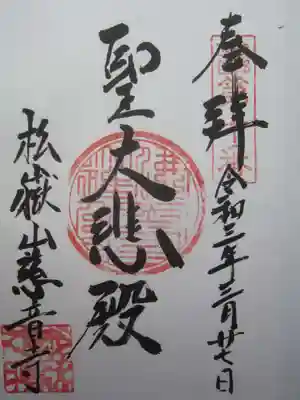 奉拝
令和三年三月廿七日
聖大悲殿
松嶽山慈音寺